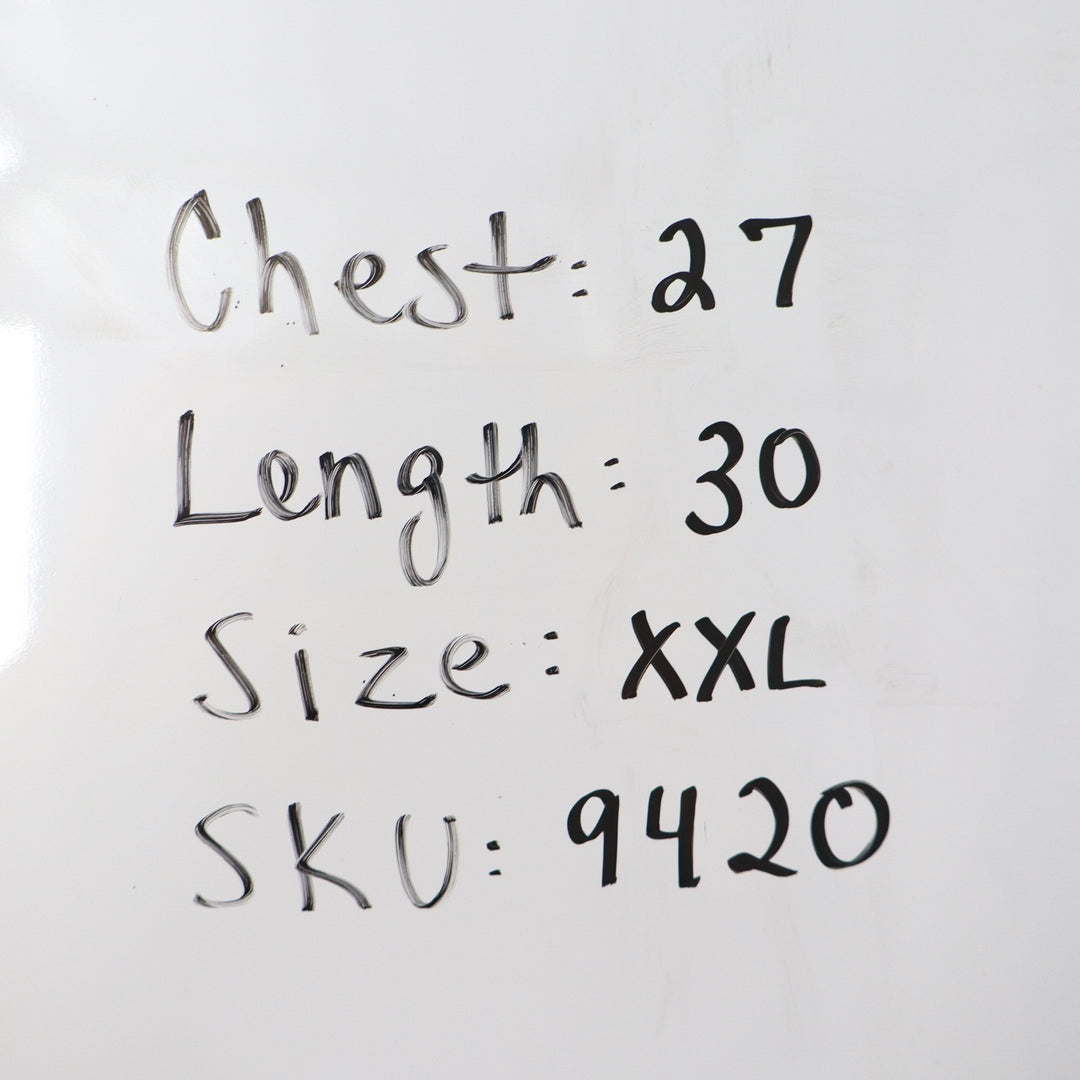 Chest: 27
Length: 30
Size: XXL
SKU: 9420